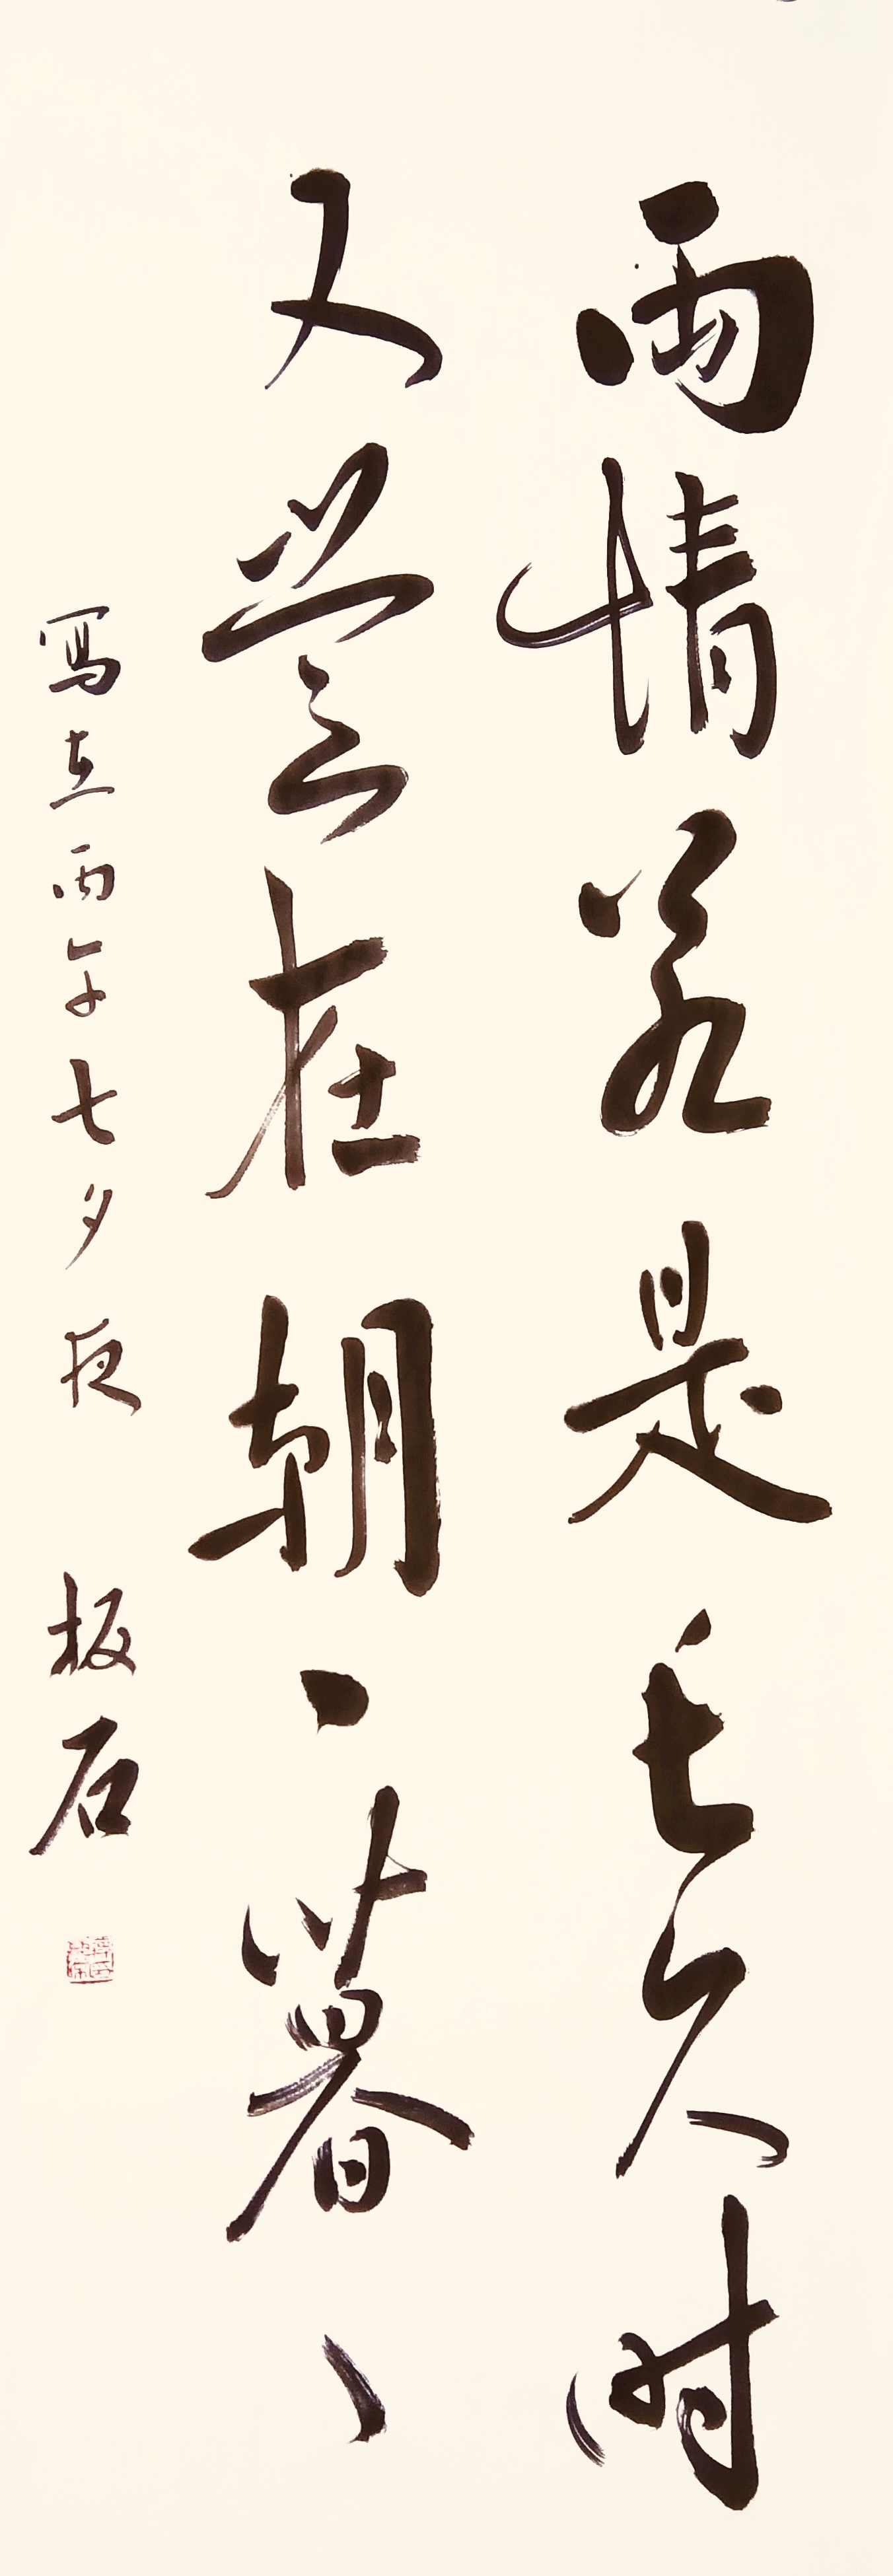 兩情若是長久時
又豈在朝丶暮丶
寫在丙午七夕夜 板石